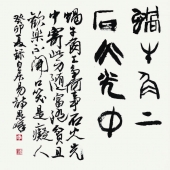 蝸牛角上
石火光中
蝸牛角上爭何事石火光
中寄此身隨富隨貧且
歡樂不開口笑是癡人
癸卯夏白居易詩